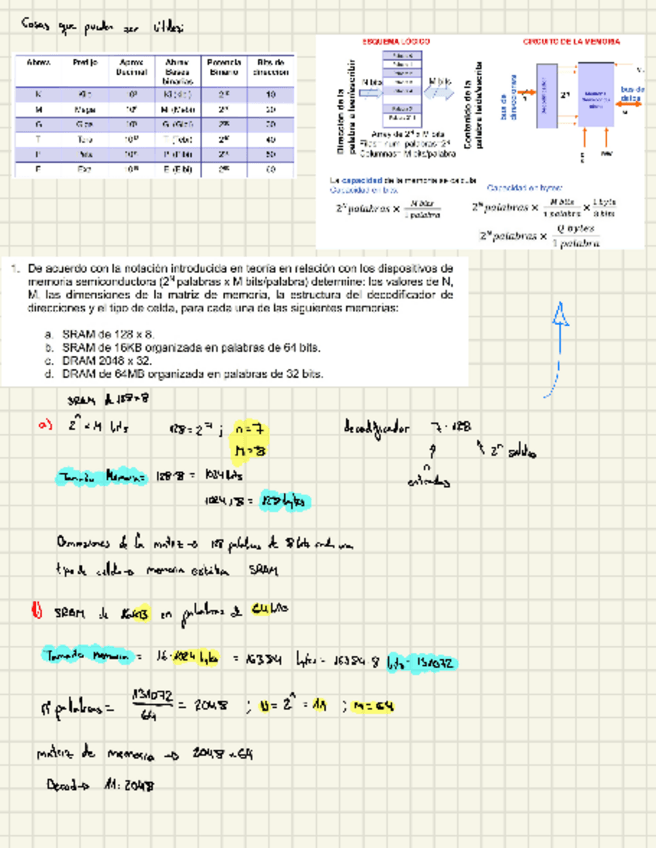 Cosas que pueden ser útiles:
Abrev. Prefijo Aprox Decimal Abrev Bases binarias Potencia Binario Bits de dirección
K Kilo 10³ Ki (Kibi) 2¹⁰ 10
M Mega 10⁶ Mi (Mebi) 2²⁰ 20
G Giga 10⁹ Gi (Gibi) 2³⁰ 30
T Tera 10¹² Ti (Tebi) 2⁴⁰ 40
P Peta 10¹⁵ Pi (Pebi) 2⁵⁰ 50
E Exa 10¹⁸ Ei (Exbi) 2⁶⁰ 60
ESQUEMA LÓGICO
Dirección de la palabra a leer/escribir
N bits
M bits
Contenido de la palabra leída/escrita
Array de 2ᴺ x M bits
Filas= num. palabras: 2ᴺ
Columnas= M bits/palabra
CIRCUITO DE LA MEMORIA
bus de direcciones
2ᴺ
bus de datos
La capacidad de la memoria se calcula
Capacidad en bits:
2ᴺ palabras × M bits / 1 palabra
Capacidad en bytes:
2ᴺ palabras × M bits / 1 palabra × 1 byte / 8 bits
2ᴺ palabras × Q bytes / 1 palabra
1. De acuerdo con la notación introducida en teoría en relación con los dispositivos de
memoria semiconductora (2ᴺ palabras x M bits/palabra) determine: los valores de N,
M, las dimensiones de la matriz de memoria, la estructura del decodificador de
direcciones y el tipo de celda, para cada una de las siguientes memorias:
a. SRAM de 128 x 8.
b. SRAM de 16KB organizada en palabras de 64 bits.
c. DRAM 2048 x 32.
d. DRAM de 64MB organizada en palabras de 32 bits.
SRAM de 128×8
a) 2ⁿ × M bits 128 = 2⁷ ; n=7
M=8
decodificador 7·128
n entradas
2ⁿ salidas
Tamaño Memoria = 128·8 = 1024 bits
1024 / 8 = 128 bytes
Dimensiones de la matriz → 128 palabras de 8 bits cada una
tipo de celda → memoria estática SRAM
b) SRAM de 16KB en palabras de 64 bits
Tamaño memoria = 16·1024 bytes = 16384 bytes = 16384·8 bits = 131072
nº palabras = 131072 / 64 = 2048 ; N = 2ⁿ = 11 ; M = 64
matriz de memoria → 2048×64
Decod → 11:2048